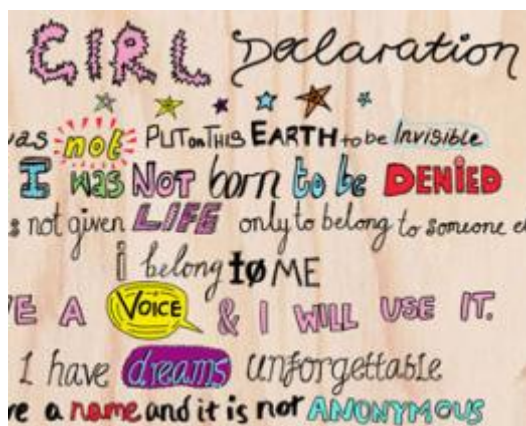 GIRL Declaration
was not PUT on THIS EARTH to be Invisible
I was NOT born to be DENIED
not given LIFE only to belong to someone
i belong to ME
A VOICE & I WILL USE IT.
I have dreams unforgettable
a name and it is not ANONYMOUS